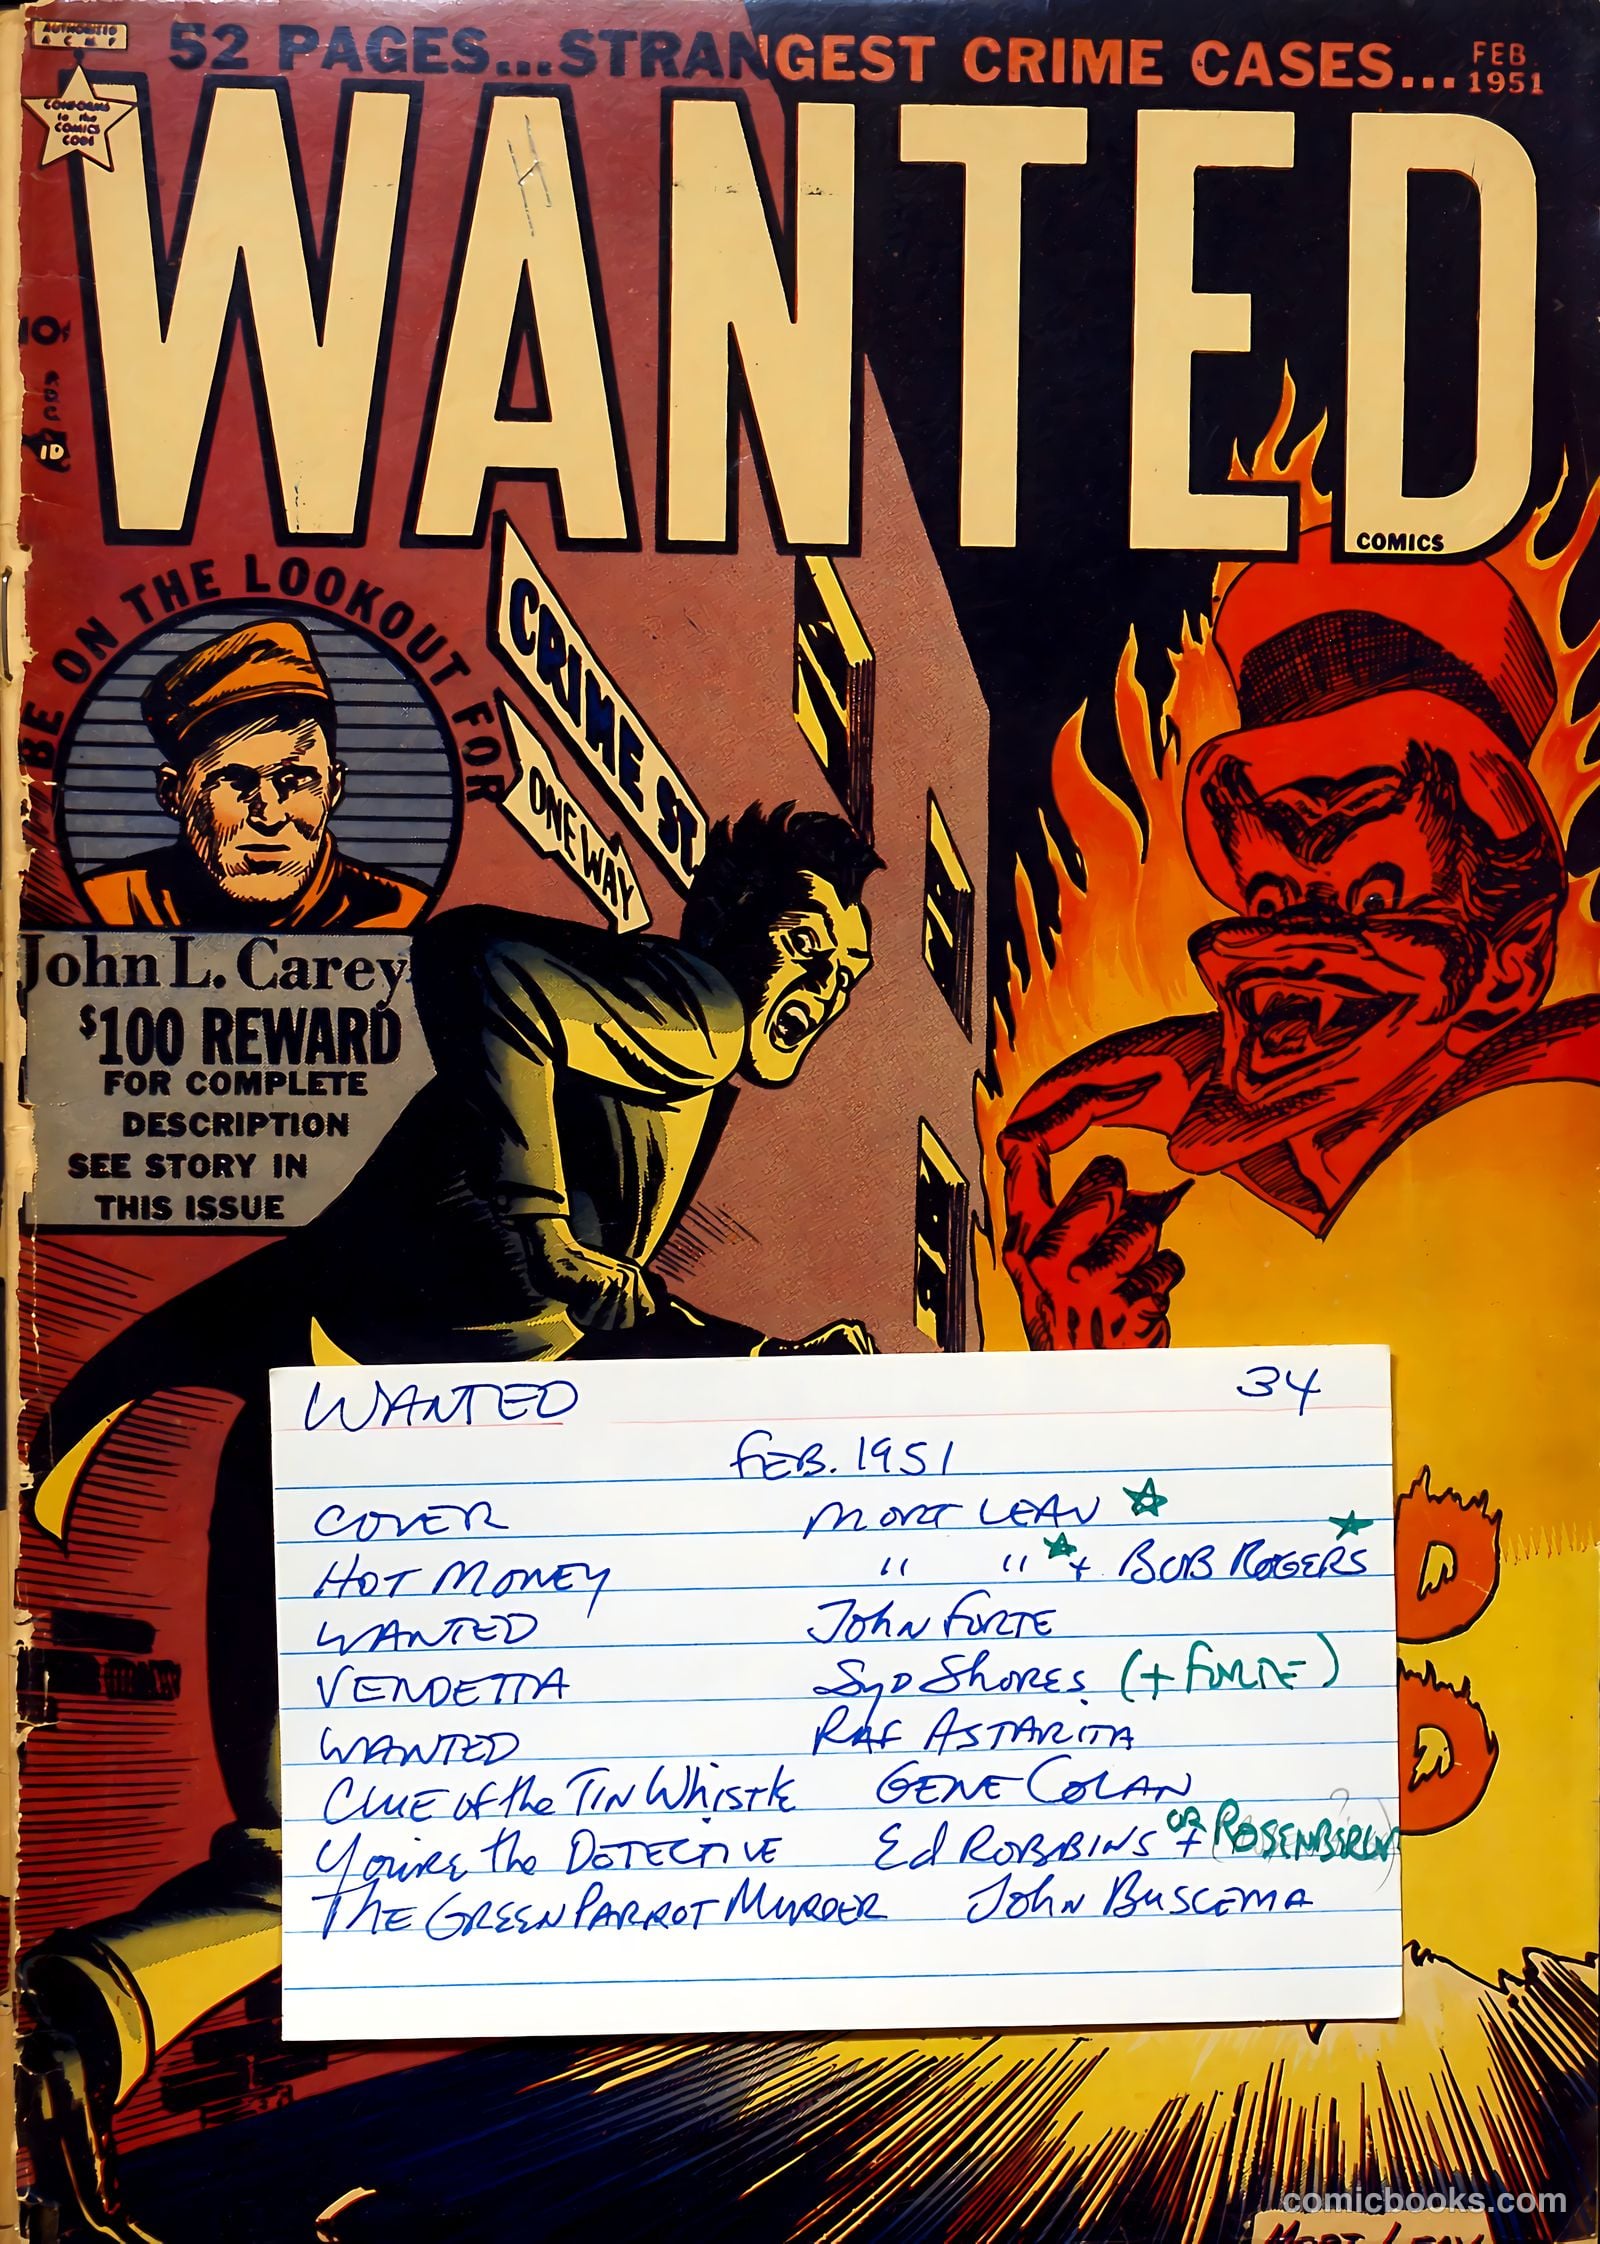 AUTHORIZED
A C M P
CONFORMS
to the
COMICS
CODE
52 PAGES...STRANGEST CRIME CASES...
FEB.
1951
WANTED
COMICS
10¢
BE ON THE LOOKOUT FOR
CRIME ST.
ONE WAY
John L. Carey
$100 REWARD
FOR COMPLETE
DESCRIPTION
SEE STORY IN
THIS ISSUE
WANTED 34
FEB. 1951
COVER MORT LEAV ☆
HOT MONEY " " ☆ + BOB ROGERS ★
WANTED John FORTE
VENDETTA SYD ShORES (+ FORTE)
WANTED RAF ASTARITA
CLUE of the TIN WhISTLE GENE COLAN
YOU'RE the DETECTIVE Ed ROBBINS or + (ROSENBERGER
ThE GREEN PARROT MURDER JOhN BUSCEMA
MORT LEAV
comicbooks.com